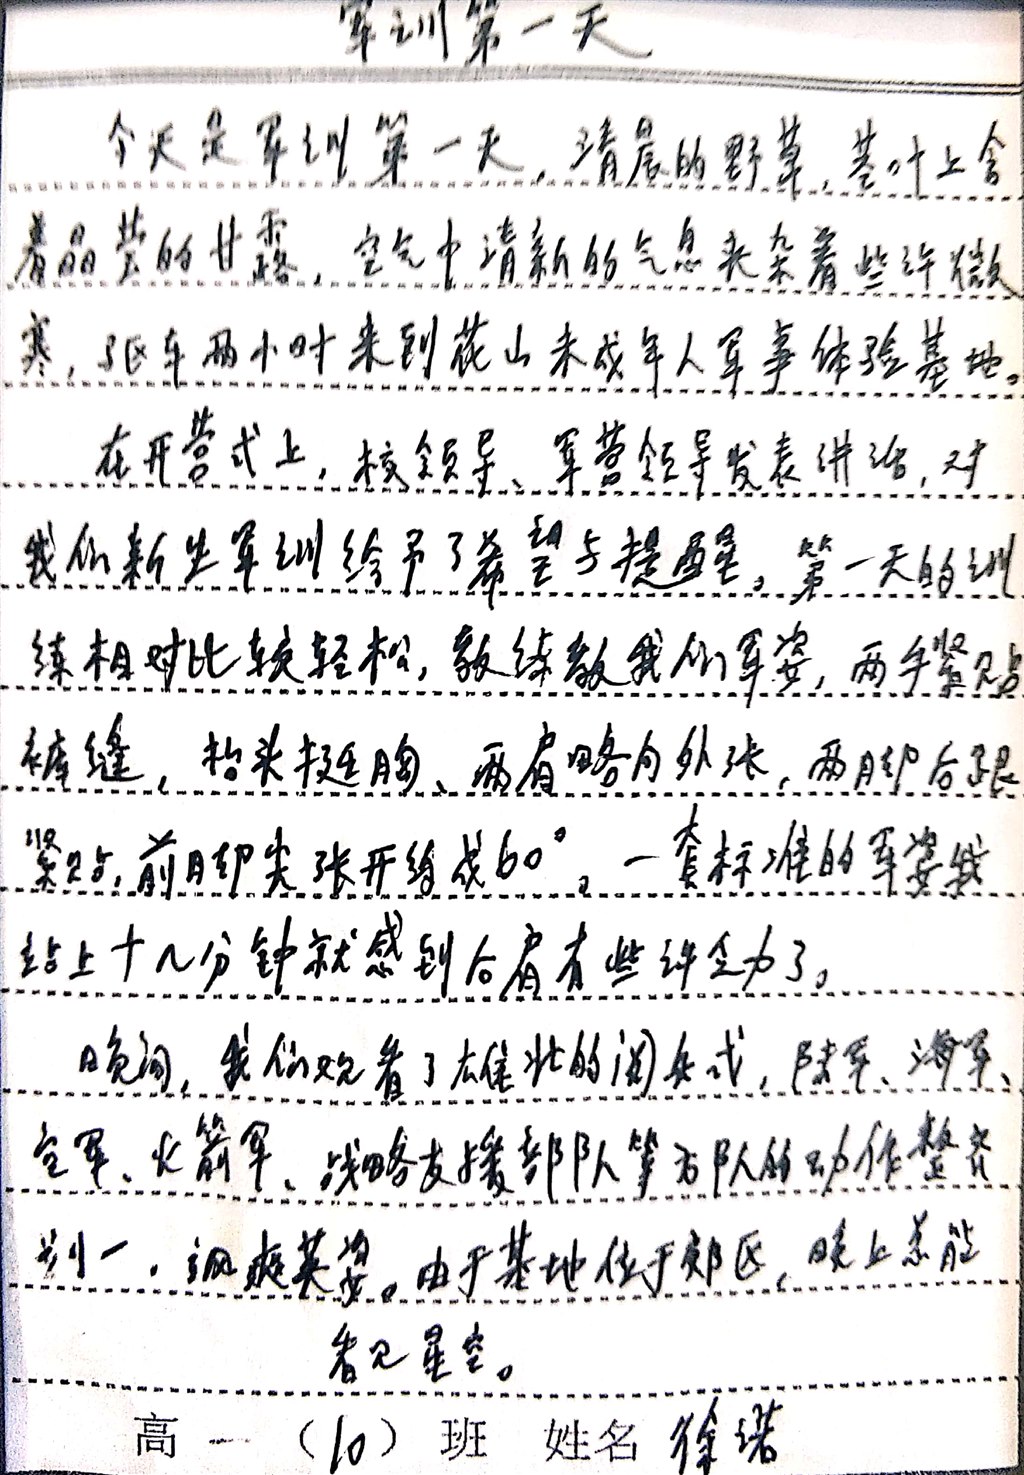 军训第一天
今天是军训第一天，清晨的野草，茎叶上含
着晶莹的甘露，空气中清新的气息夹杂着些许微
寒，驱车两小时来到花山未成年人军事体验基地。
在开营式上，校领导、军营领导发表讲话，对
我们新生军训给予了希望与提醒。第一天的训
练相对比较轻松，教练教我们军姿，两手紧贴
裤缝，抬头挺胸、两肩略向外张，两脚后跟
紧贴，前脚尖张开约成60°。一套标准的军姿我
站上十几分钟就感到后肩有些许乏力了。
晚间，我们观看了雄壮的阅兵式，陆军、海军、
空军、火箭军、战略支援部队等方队的动作整齐
划一，飒爽英姿。由于基地位于郊区，晚上总能
看见星空。
高一（10）班 姓名 徐诺